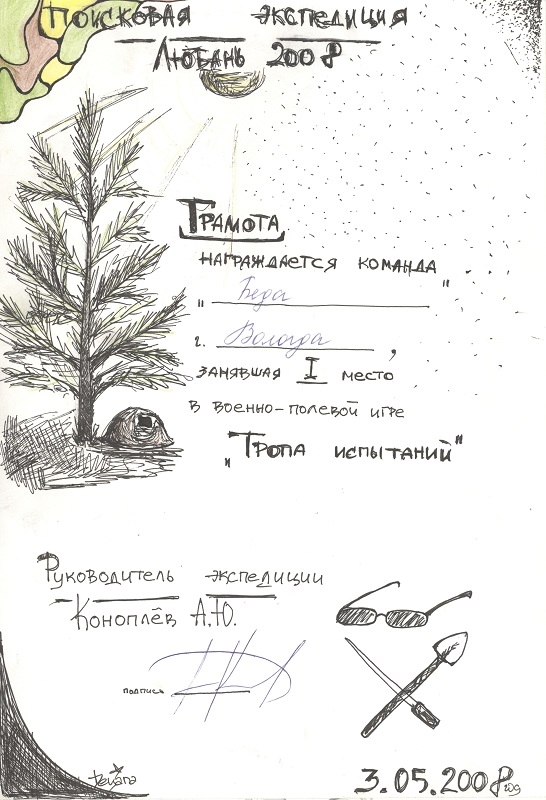 ПОИСКОВАЯ ЭКСПЕДИЦИЯ
ЛЮБАНЬ 2008
ГРАМОТА
НАГРАЖДАЕТСЯ КОМАНДА
„ Беда "
г. Вологда ,
ЗАНЯВШАЯ I МЕСТО
В ВОЕННО-ПОЛЕВОЙ ИГРЕ
„ТРОПА ИСПЫТАНИЙ"
РУКОВОДИТЕЛЬ ЭКСПЕДИЦИИ
КОНОПЛЁВ А.Ю.
подпись
3.05.2008 год